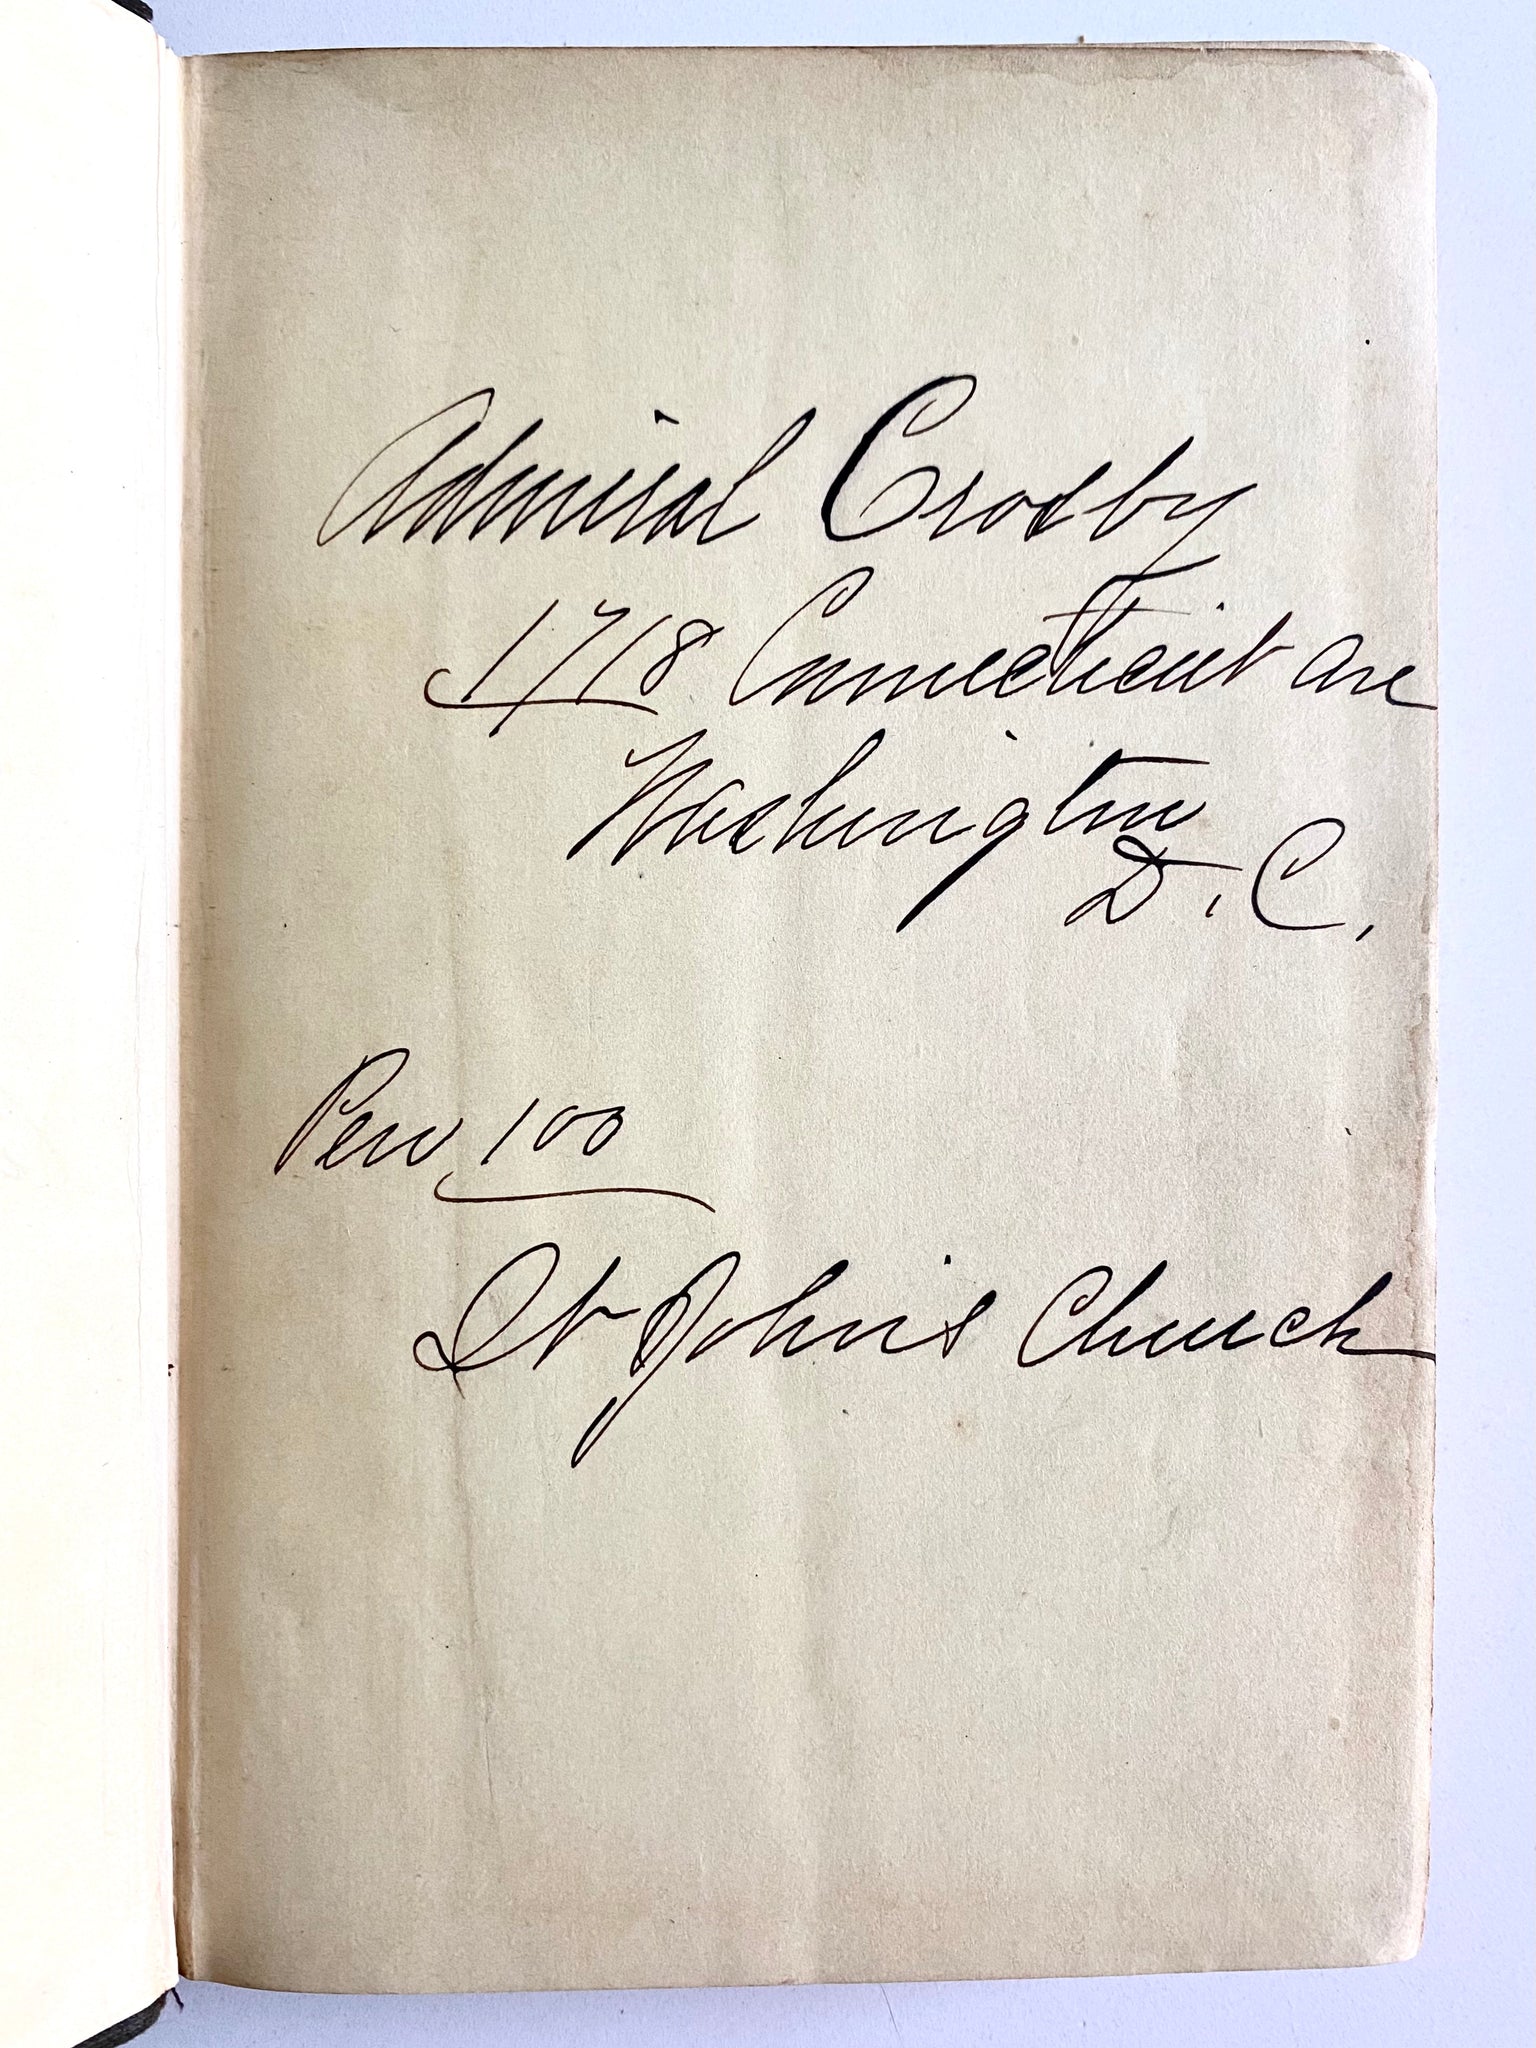 Admiral Crosby
1718 Connecticut Ave
Washington
D. C.
Pew 100
St John's Church